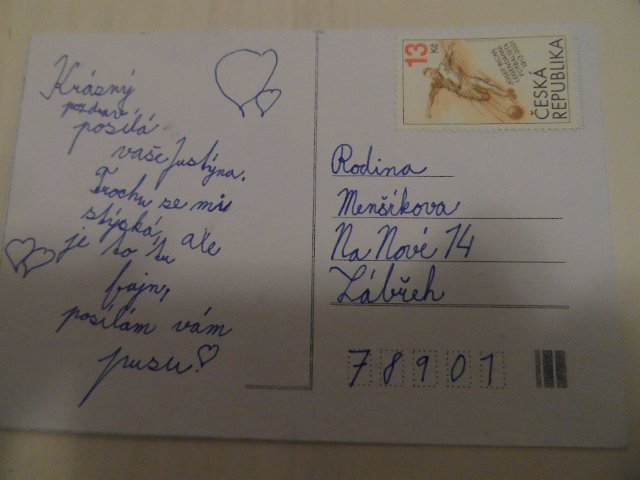 Krásný
pozdrav
posílá
vaše Justýna.
Trochu se mi
stýská, ale
je to tu
fajn,
posílám vám
pusu!
13 Kč
JOSEF BICAN
LEGENDÁRNÍ
FOTBALISTA
1913-2001
ČESKÁ
REPUBLIKA
Rodina
Menšíkova
Na Nové 14
Zábřeh
78901